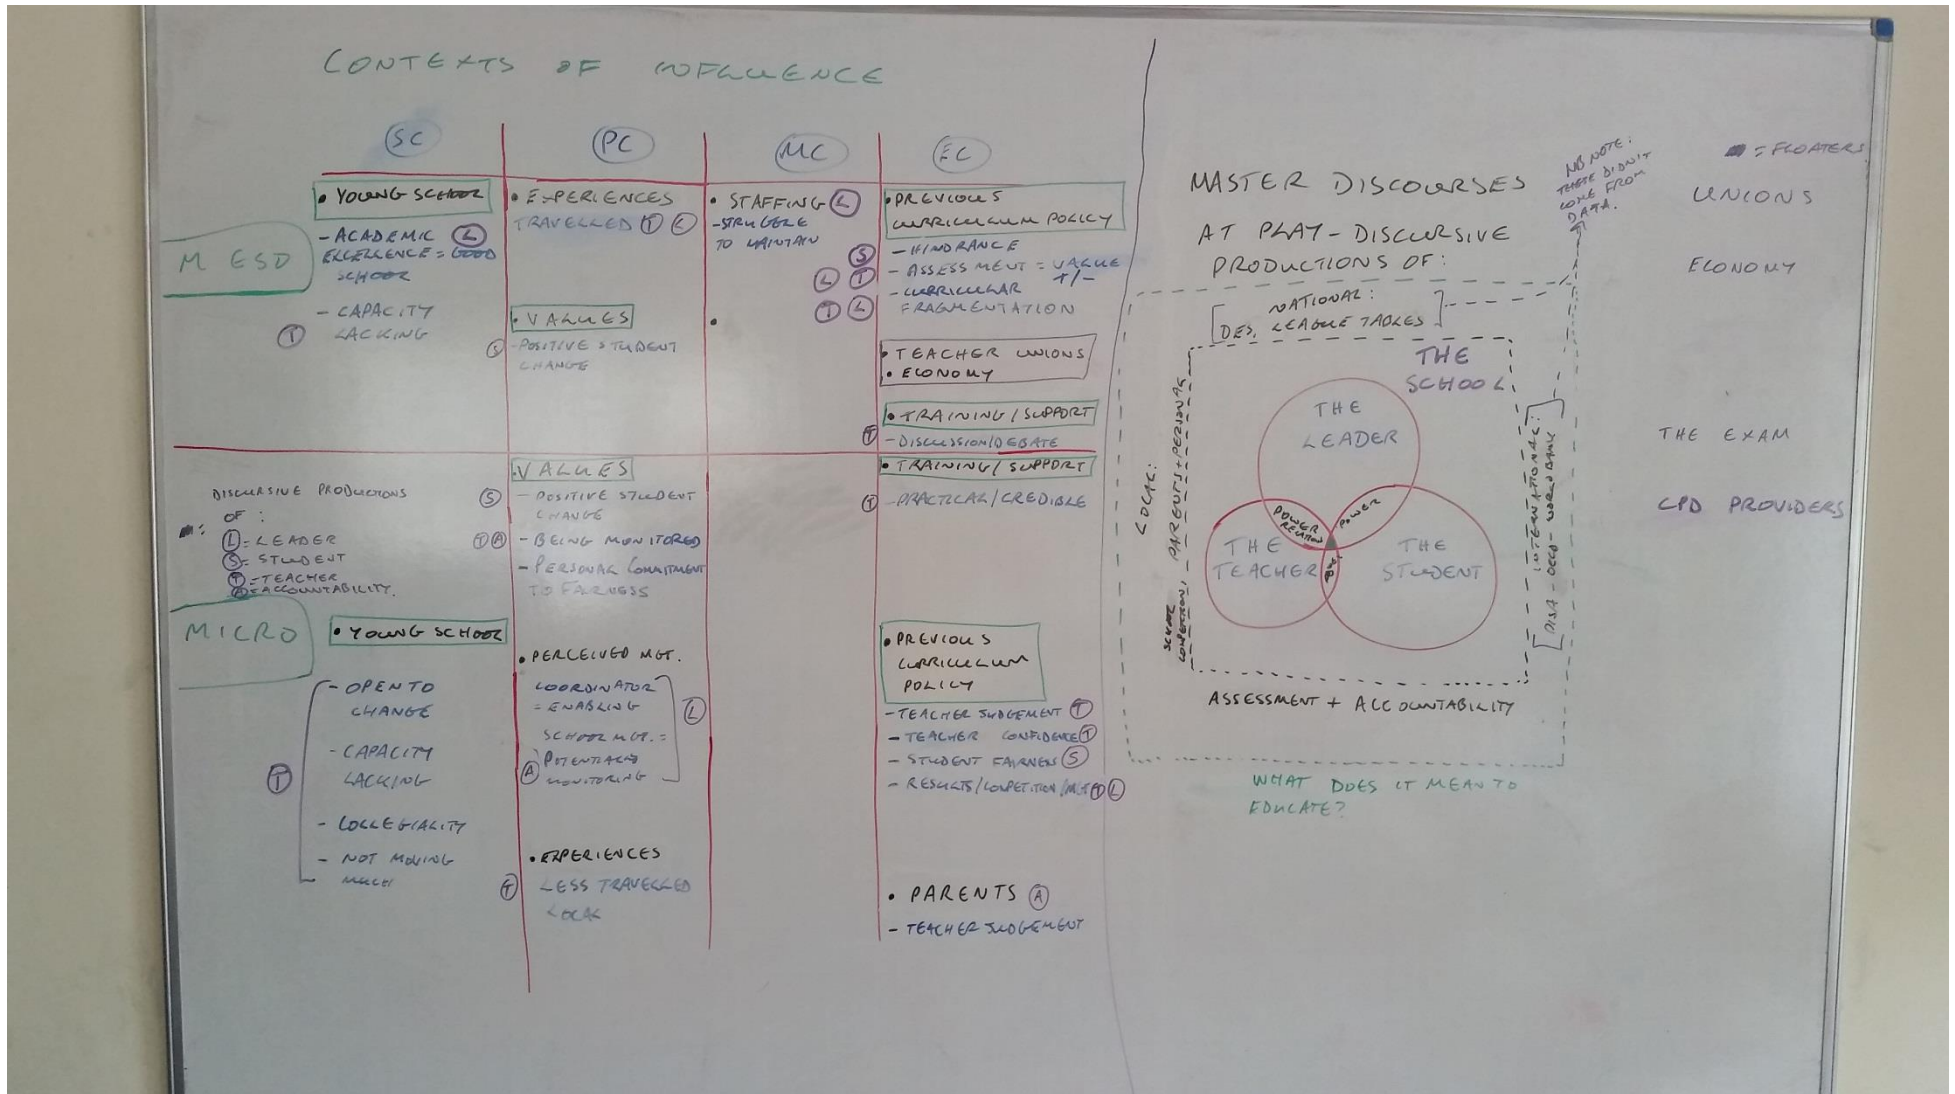 CONTEXTS OF INFLUENCE
SC
PC
MC
EC
MESO
• YOUNG SCHOOL
- ACADEMIC L
EXCELLENCE = GOOD
SCHOOL
- CAPACITY
T LACKING
• EXPERIENCES
TRAVELLED T L
• VALUES
S - POSITIVE STUDENT
CHANGE
• STAFFING L
- STRUGGLE
TO MAINTAIN
•
• PREVIOUS
CURRICULUM POLICY
- HINDRANCE
S - ASSESSMENT = VALUE
+/-
L T - CURRICULAR
T L FRAGMENTATION
• TEACHER UNIONS
• ECONOMY
• TRAINING/SUPPORT
T - DISCUSSION/DEBATE
DISCURSIVE PRODUCTIONS
OF :
L = LEADER
S = STUDENT
T = TEACHER
A = ACCOUNTABILITY.
MICRO
• YOUNG SCHOOL
- OPEN TO
CHANGE
- CAPACITY
T LACKING
- COLLEGIALITY
- NOT MOVING
MUCH
• VALUES
S - POSITIVE STUDENT
CHANGE
T A - BEING MONITORED
- PERSONAL COMMITMENT
TO FAIRNESS
• PERCEIVED MGT.
COORDINATOR
= ENABLING L
SCHOOL MGT. =
A MONITORING
• EXPERIENCES
T LESS TRAVELLED
LOCAL
• TRAINING/SUPPORT
T - PRACTICAL/CREDIBLE
• PREVIOUS
CURRICULUM
POLICY
- TEACHER JUDGEMENT T
- TEACHER CONFIDENCE T
- STUDENT FAIRNESS S
- RESULTS/COMPETITION/MGT T L
• PARENTS A
- TEACHER JUDGEMENT
MASTER DISCOURSES
AT PLAY - DISCURSIVE
PRODUCTIONS OF :
NB NOTE:
THESE DIDN'T
COME FROM
DATA.
= FLOATERS
UNIONS
ECONOMY
THE EXAM
CPD PROVIDERS
NATIONAL :
DES. LEAGUE TABLES
THE
SCHOOL
THE
LEADER
POWER
RELATION
POWER
THE
TEACHER
THE
STUDENT
LOCAL:
SCHOOL COMPETITION, PARENTS + PERSONAL
INTERNATIONAL:
OECD - WORLD BANK
ASSESSMENT + ACCOUNTABILITY
WHAT DOES IT MEAN TO
EDUCATE?